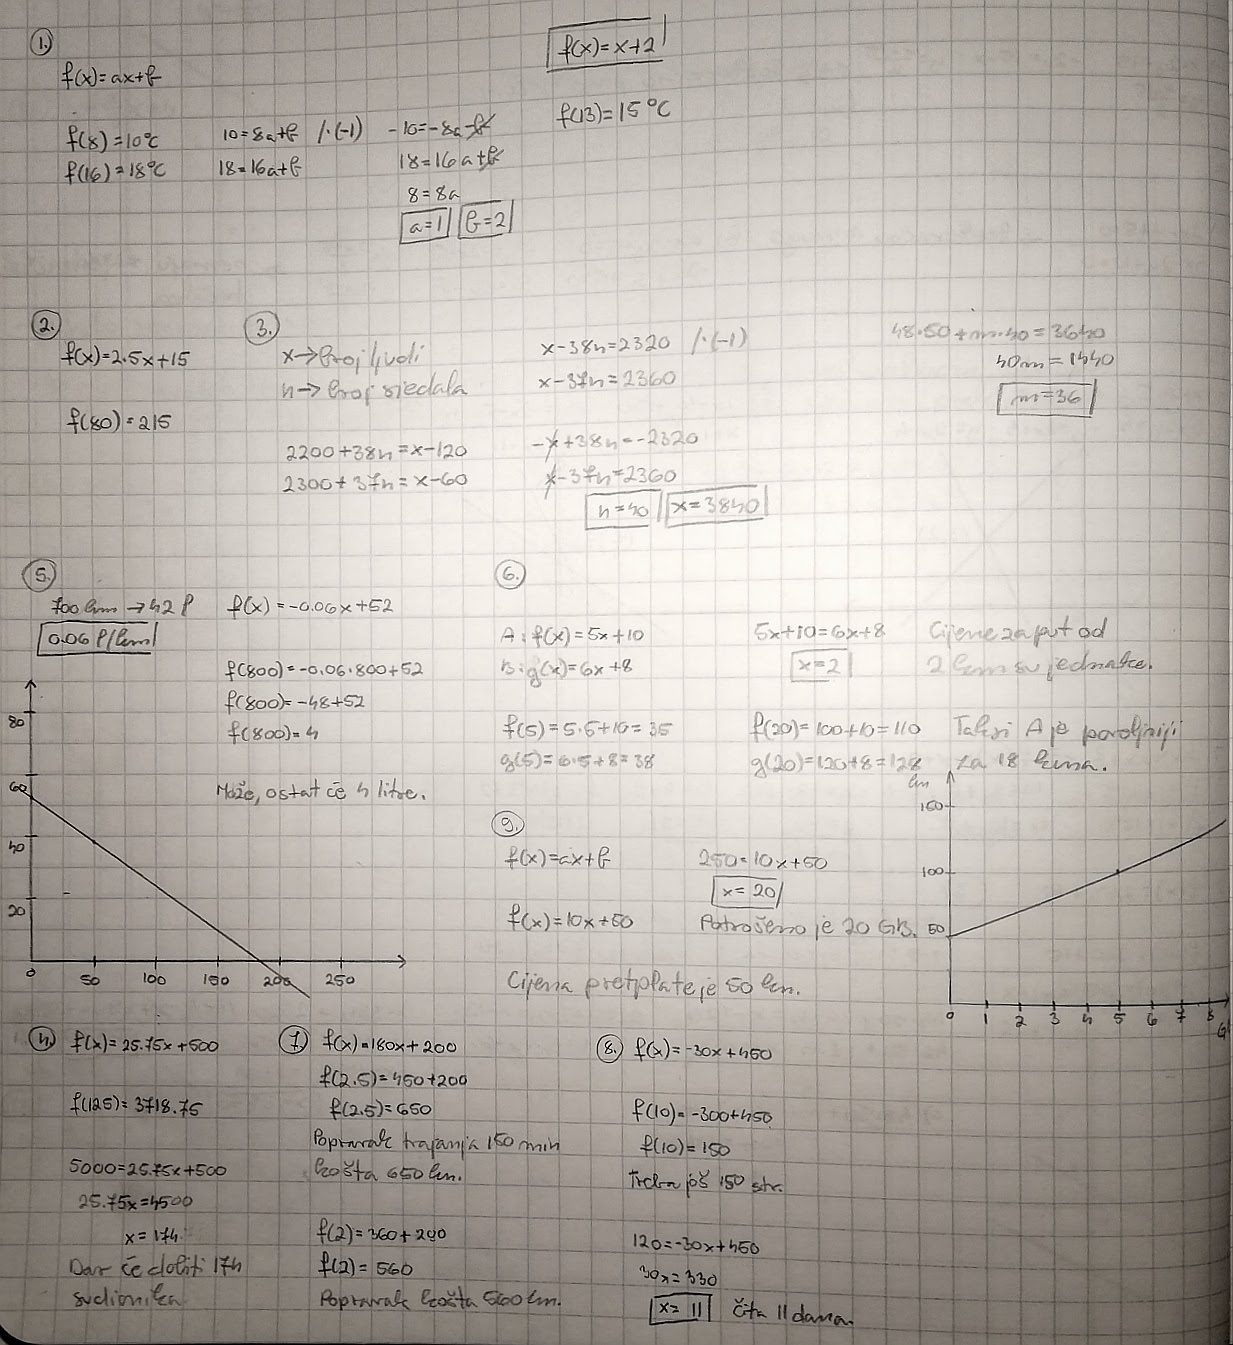 1.
f(x)=ax+b
f(8)=10°C
f(16)=18°C
10=8a+b /·(-1)
18=16a+b
-10=-8a-b
18=16a+b
8=8a
a=1 b=2
f(x)=x+2
f(13)=15°C
2.
f(x)=2.5x+15
f(80)=215
3.
x→broj ljudi
n→broj sjedala
2200+38n=x-120
2300+37n=x-60
x-38n=2320 /·(-1)
x-37n=2360
-x+38n=-2320
x-37n=2360
n=40 x=3840
48·50+m·40=3640
40m=1440
m=36
5.
700 km → 42 l
0.06 l/km
f(x)=-0.06x+52
f(800)=-0.06·800+52
f(800)=-48+52
f(800)=4
Može, ostat će 4 litre.
80
60
40
20
0 50 100 150 200 250
6.
A: f(x)=5x+10
B: g(x)=6x+8
5x+10=6x+8
x=2
Cijene za put od
2 km su jednake.
f(5)=5·5+10=35
g(5)=6·5+8=38
f(20)=100+10=110
g(20)=120+8=128
Taksi A je povoljniji
za 18 kuna.
9.
f(x)=ax+b
f(x)=10x+50
250=10x+50
x=20
Potrošeno je 20 GB.
Cijena pretplate je 50 kn.
kn
150
100
50
0 1 2 3 4 5 6 7 8
4.
f(x)=25.75x+500
f(125)=3718.75
5000=25.75x+500
25.75x=4500
x=174
Dar će dobiti 174
sudionika
7.
f(x)=180x+200
f(2.5)=450+200
f(2.5)=650
Popravak trajanja 150 min
košta 650 kn.
f(2)=360+200
f(2)=560
Popravak košta 560 kn.
8.
f(x)=-30x+450
f(10)=-300+450
f(10)=150
Treba još 150 str.
120=-30x+450
30x=330
x=11 čita 11 dana.